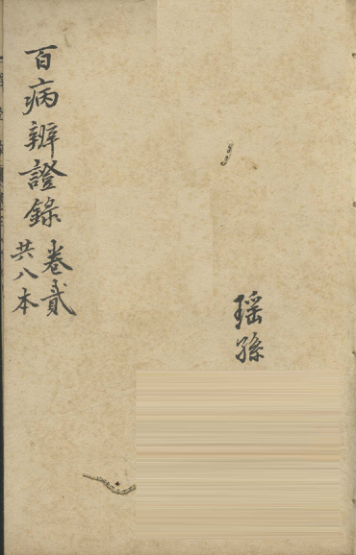 百病辨證錄
卷貳
共八本
瑶孫